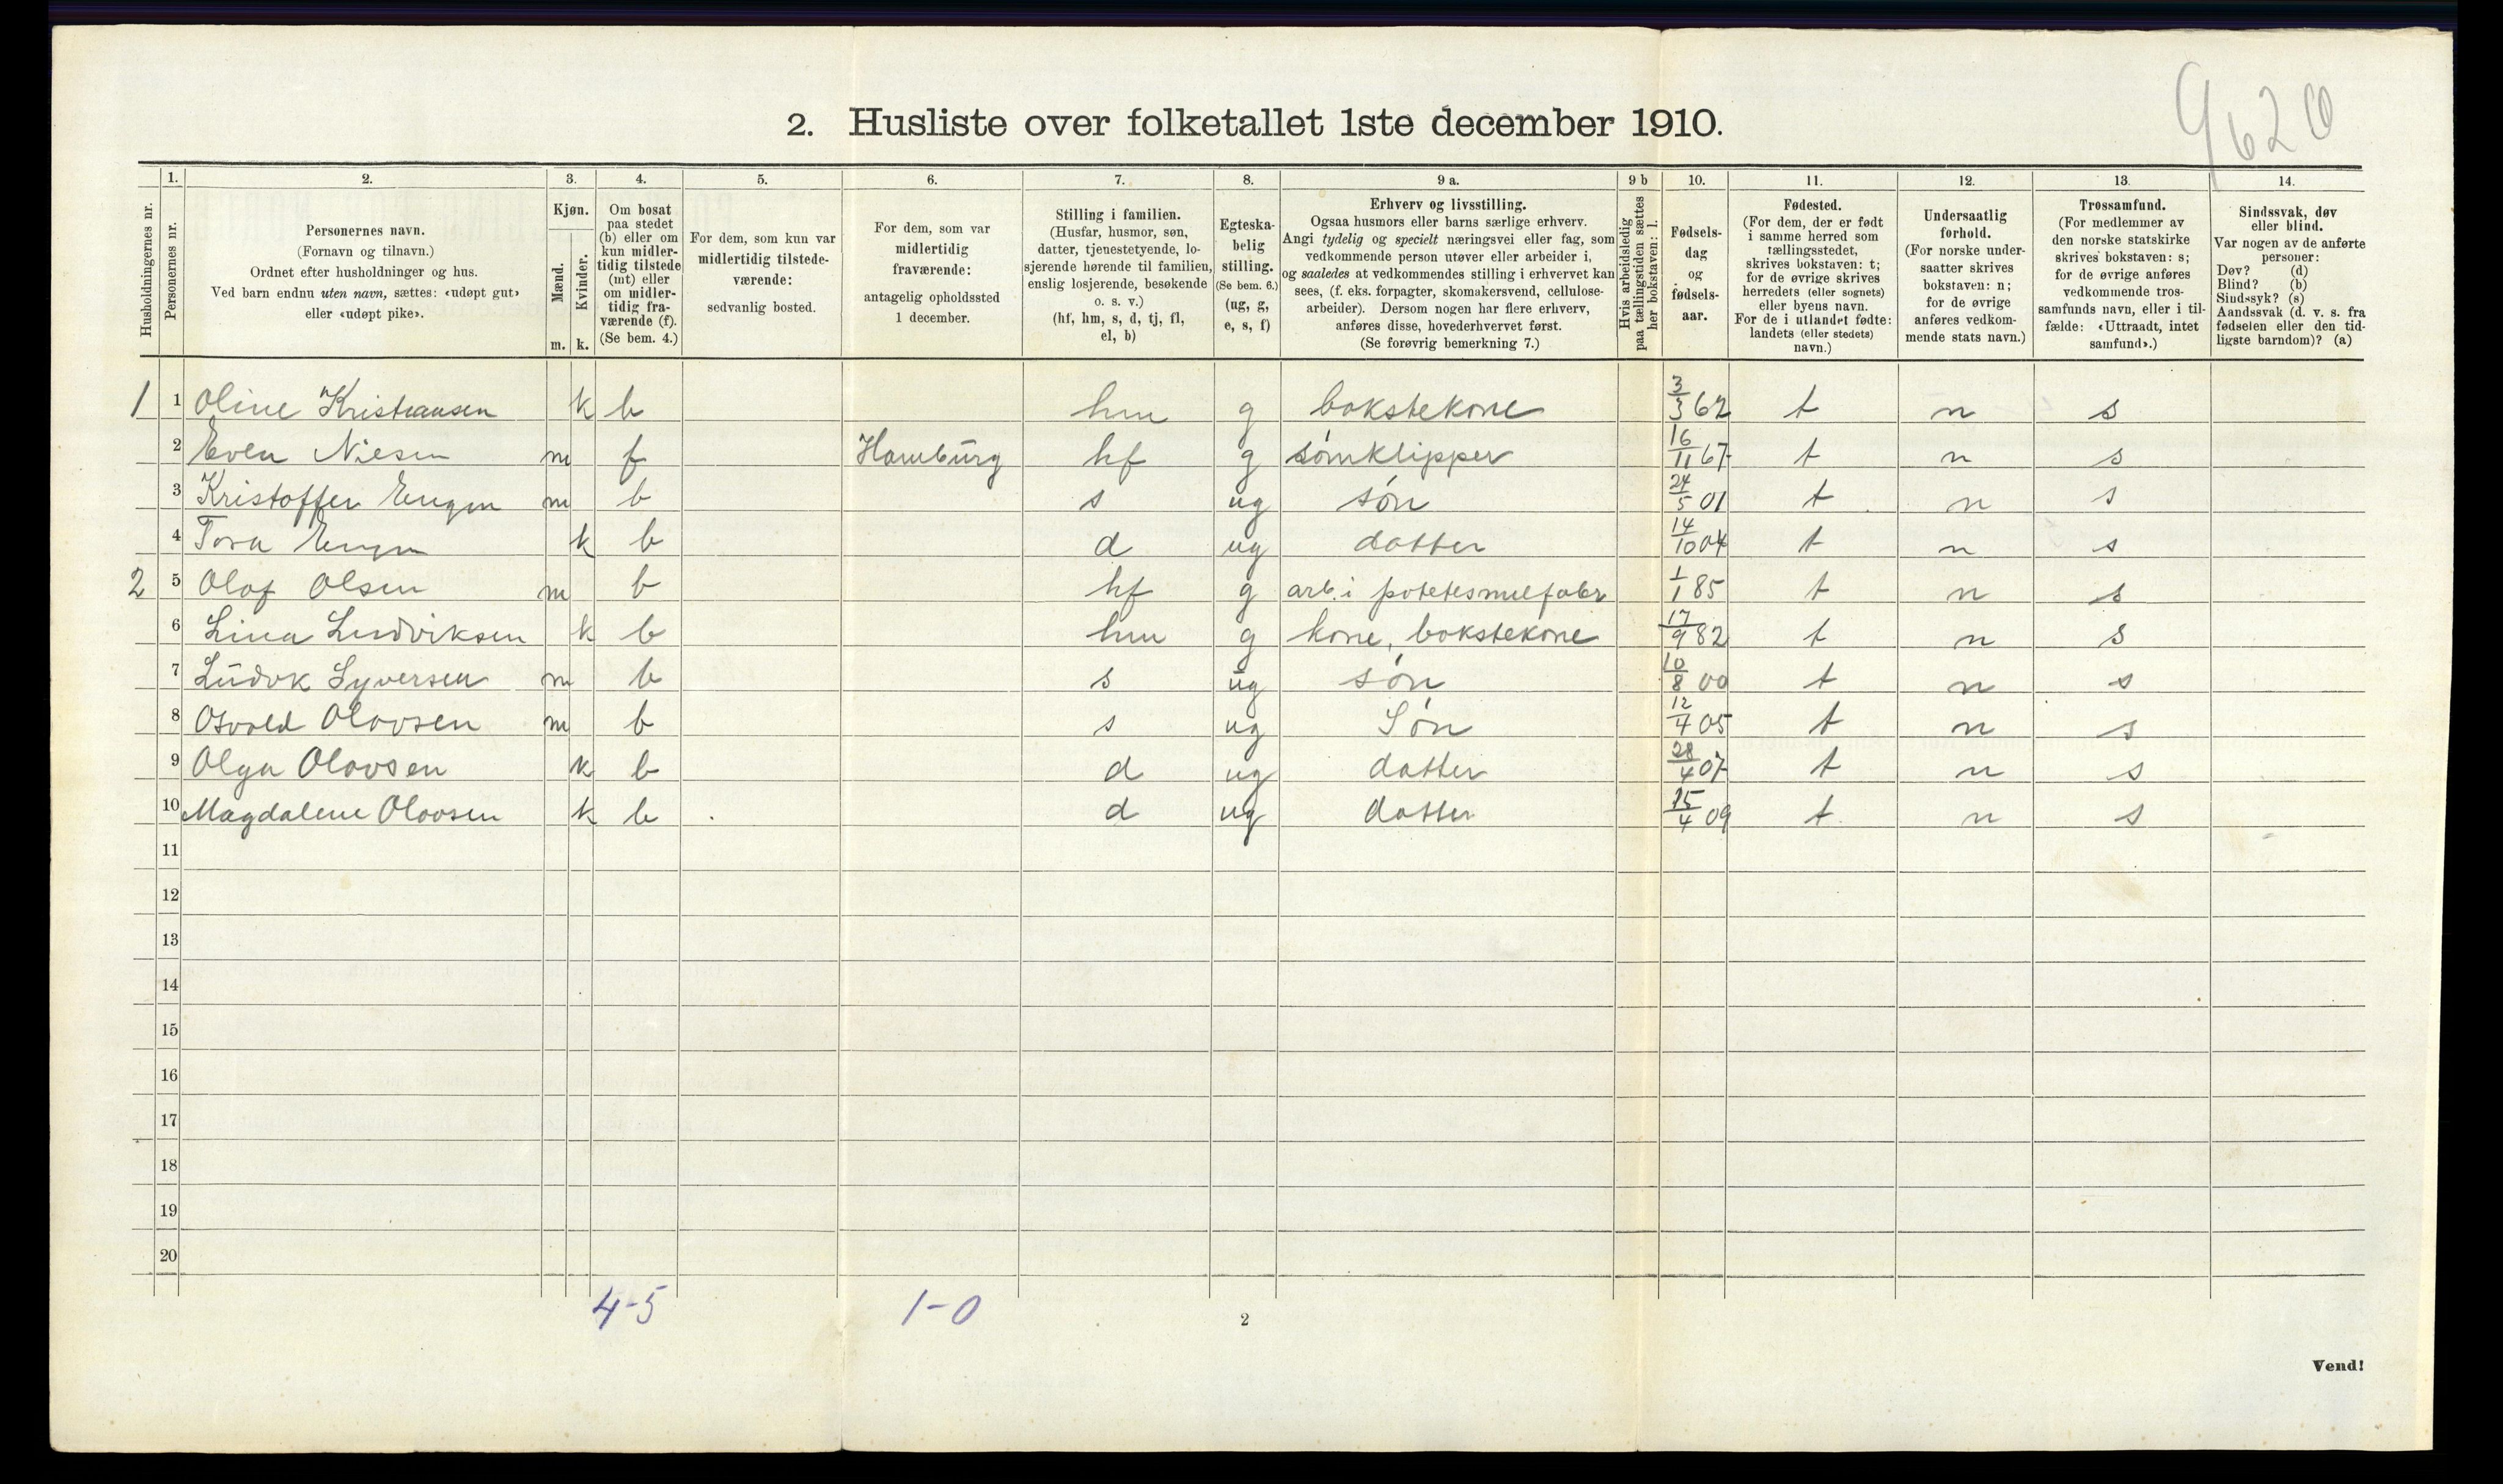 9620
2. Husliste over folketallet 1ste december 1910.
Husholdningernes nr.
1. Personernes nr.
2. Personernes navn.
(Fornavn og tilnavn.)
Ordnet efter husholdninger og hus.
Ved barn endnu uten navn, sættes: «udøpt gut»
eller «udøpt pike».
3. Kjøn.
Mænd. m.
Kvinder. k.
4. Om bosat
paa stedet
(b) eller om
kun midler-
tidig tilstede
(mt) eller
om midler-
tidig fra-
værende (f).
(Se bem. 4.)
5. For dem, som kun var
midlertidig tilstede-
værende:
sedvanlig bosted.
6. For dem, som var
midlertidig
fraværende:
antagelig opholdssted
1 december.
7. Stilling i familien.
(Husfar, husmor, søn,
datter, tjenestetyende, lo-
sjerende hørende til familien,
enslig losjerende, besøkende
o. s. v.)
(hf, hm, s, d, tj, fl,
el, b)
8. Egteska-
belig
stilling.
(Se bem. 6.)
(ug, g,
e, s, f)
9 a. Erhverv og livsstilling.
Ogsaa husmors eller barns særlige erhverv.
Angi tydelig og specielt næringsvei eller fag, som
vedkommende person utøver eller arbeider i,
og saaledes at vedkommendes stilling i erhvervet kan
sees, (f. eks. forpagter, skomakersvend, cellulose-
arbeider). Dersom nogen har flere erhverv,
anføres disse, hovederhvervet først.
(Se forøvrig bemerkning 7.)
9 b Hvis arbeidsledig
paa tællingstiden sættes
her bokstaven: l.
10. Fødsels-
dag
og
fødsels-
aar.
11. Fødested.
(For dem, der er født
i samme herred som
tællingsstedet,
skrives bokstaven: t;
for de øvrige skrives
herredets (eller sognets)
eller byens navn.
For de i utlandet fødte:
landets (eller stedets)
navn.)
12. Undersaatlig
forhold.
(For norske under-
saatter skrives
bokstaven: n;
for de øvrige
anføres vedkom-
mende stats navn.)
13. Trossamfund.
(For medlemmer av
den norske statskirke
skrives bokstaven: s;
for de øvrige anføres
vedkommende tros-
samfunds navn, eller i til-
fælde: «Uttraadt, intet
samfund».)
14. Sindssvak, døv
eller blind.
Var nogen av de anførte
personer:
Døv? (d)
Blind? (b)
Sindssyk? (s)
Aandssvak (d. v. s. fra
fødselen eller den tid-
ligste barndom)? (a)
1 1 Oline Kristiansen k b hm g bokstekone 3/3 62 t n s
2 Even Nilsen m f Hamburg hf g sömklipper 16/11 67 t n s
3 Kristoffer Engen m b s ug søn 24/5 01 t n s
4 Tora Engen k b d ug datter 14/10 04 t n s
2 5 Olaf Olsen m b hf g arb. i potetesmelfabr 1/1 85 t n s
6 Lina Ludviksen k b hm g kone, bokstekone 17/9 82 t n s
7 Ludvk Syversen m b s ug søn 10/8 00 t n s
8 Osvald Olavsen m b s ug Søn 12/4 05 t n s
9 Olga Olavsen k b d ug datter 28/4 07 t n s
10 Magdalene Olavsen k b d ug datter 15/4 09 t n s
11
12
13
14
15
16
17
18
19
20
4-5 1-0
2
Vend!